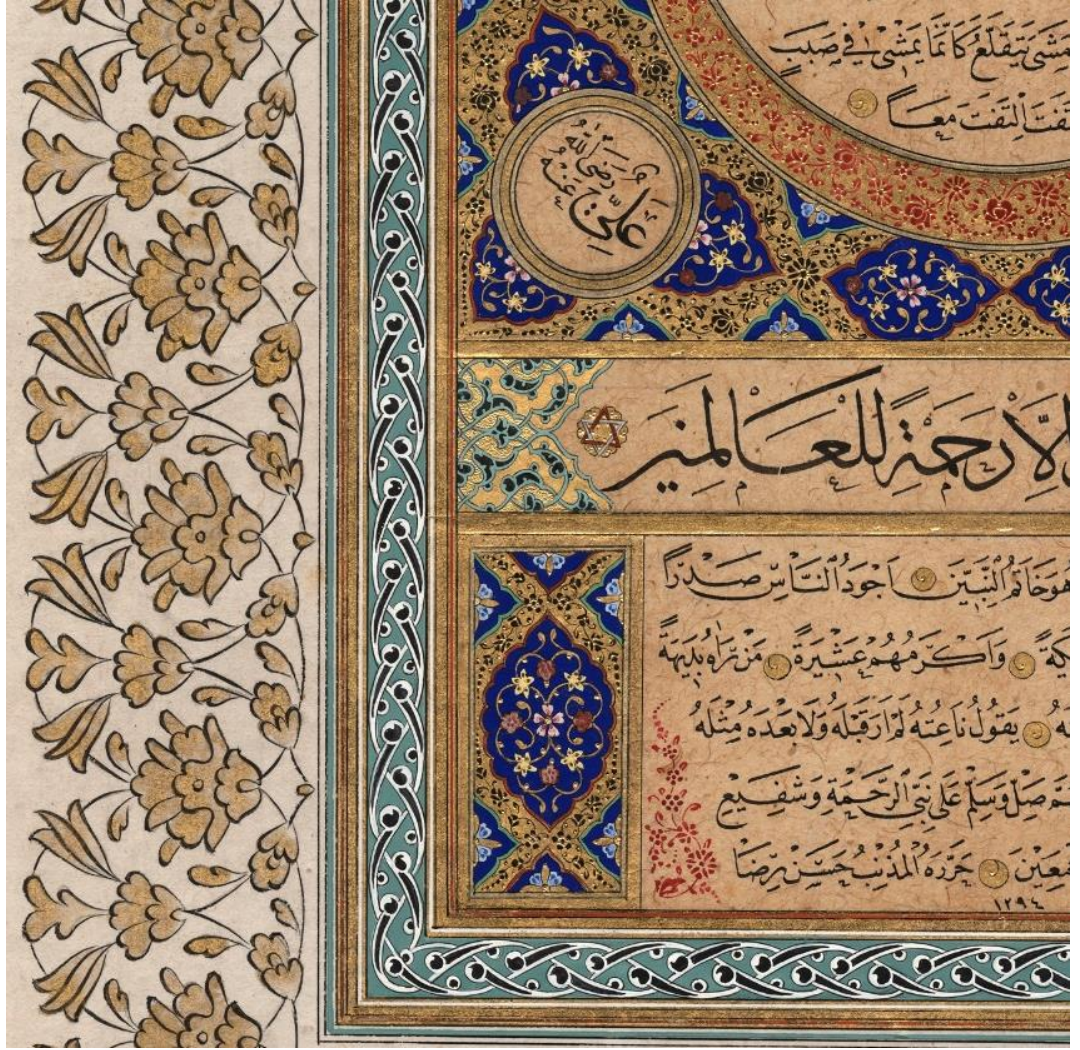 مَشَى يَتَقَلَّعُ كَاَنَّمَا يَمْشِي فِي صَبَبٍ
اِلْتَفَتَ مَعاً
عَلِيّ رَضِيَ اللّٰهُ عَنْهُ
اِلَّا رَحْمَةً لِلْعَالَمِينَ
هُوَ خَاتَمُ النَّبِيِّينَ اَجْوَدُ النَّاسِ صَدْرًا
وَاَكْرَمُهُمْ عَشِيرَةً مَنْ رَاٰهُ بَدِيهَةً
يَقُولُ نَاعِتُهُ لَمْ اَرَ قَبْلَهُ وَلَا بَعْدَهُ مِثْلَهُ
صَلِّ وَسَلِّمْ عَلَى نَبِيِّ الرَّحْمَةِ وَشَفِيعِ
حَرَّرَهُ الْمُذْنِبُ حَسَنْ رِضَا
١٢٩٤